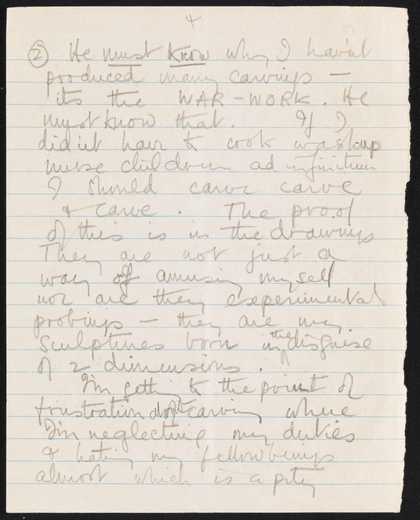 4
② He must know why I hav'nt
produced many carvings —
its the WAR-WORK. He
must know that. If I
did'nt have to cook wash up
nurse children ad infinitum
I should carve carve
& carve. The proof
of this is in the drawings
They are not just a
way of amusing myself
nor are they experimental
probings — they are my
sculptures born in the disguise
of 2 dimensions.
I'm getting to the point of
frustration carving where
I'm neglecting my duties
& hating my fellow beings
almost which is a pity